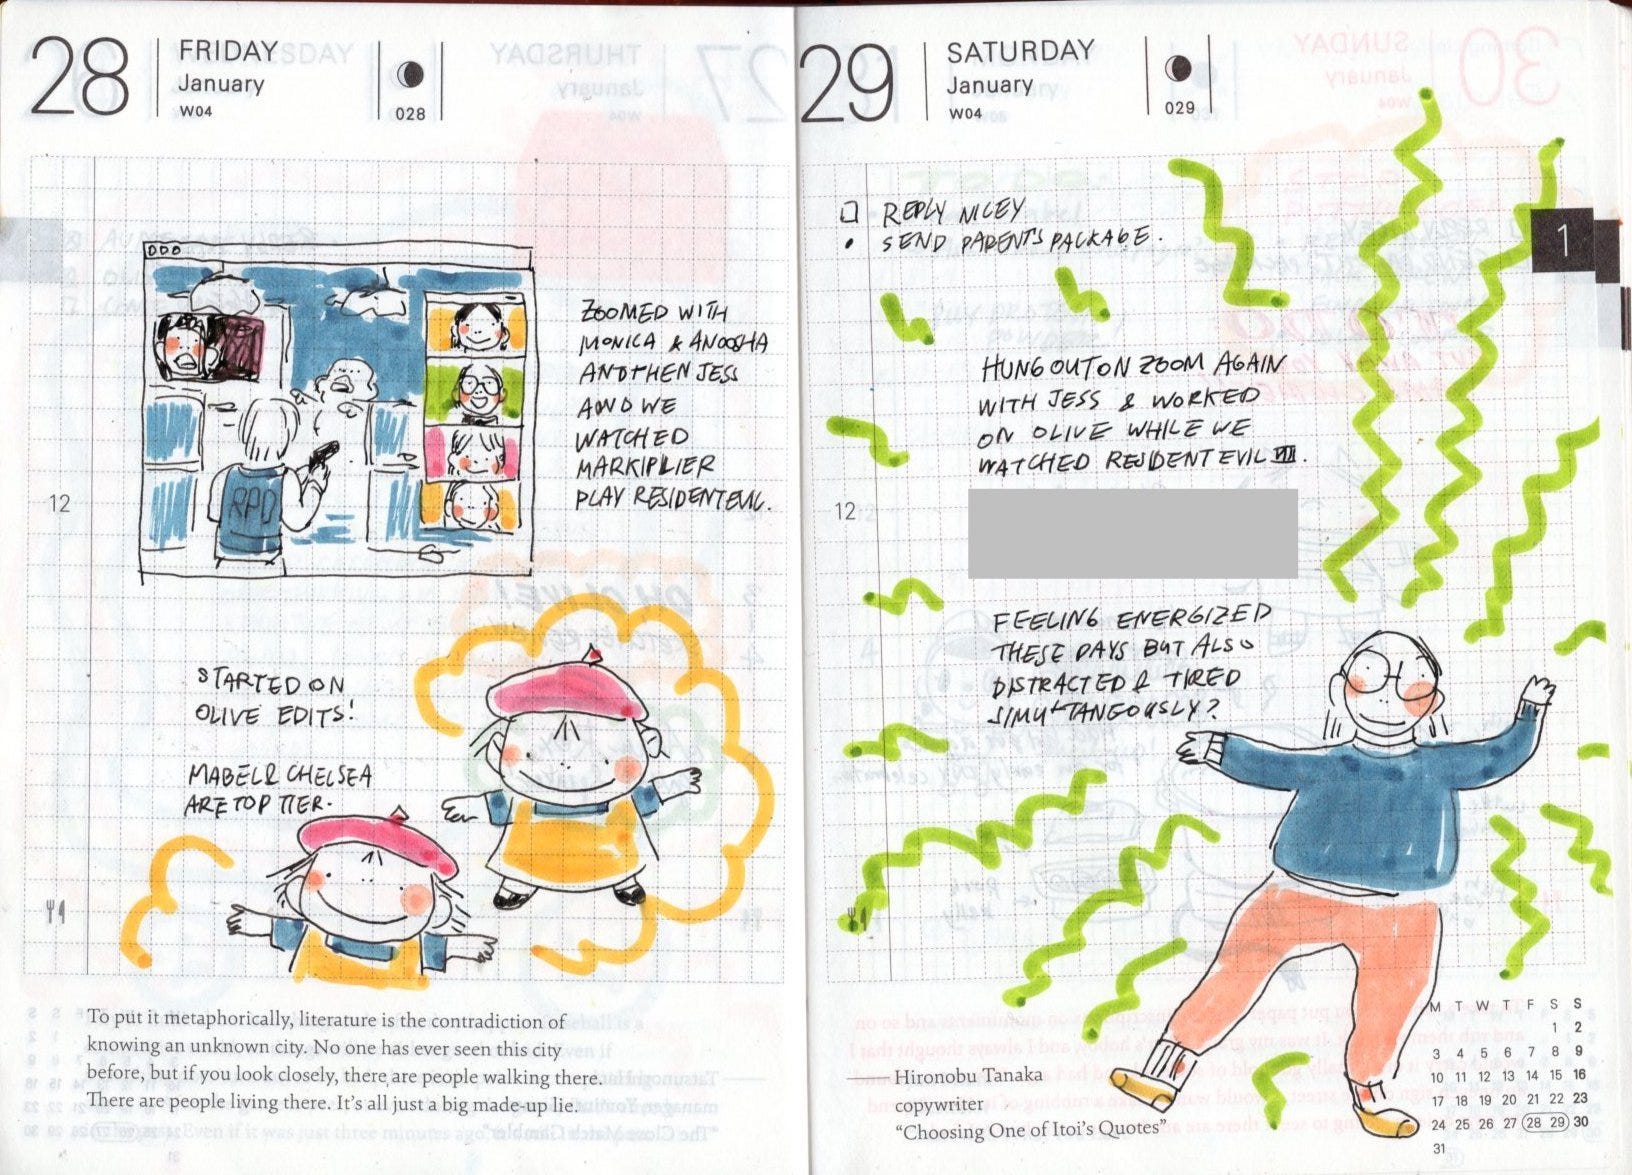 28
FRIDAY
January
W04
028
ZOOMED WITH
MONICA & ANOOSHA
AND THEN JESS
AND WE
WATCHED
MARKIPLIER
PLAY RESIDENT EVIL.
RPD
12
STARTED ON
OLIVE EDITS!
MABEL & CHELSEA
ARE TOP TIER.
To put it metaphorically, literature is the contradiction of
knowing an unknown city. No one has ever seen this city
before, but if you look closely, there are people walking there.
There are people living there. It's all just a big made-up lie.
29
SATURDAY
January
W04
029
1
REPLY NICEY
• SEND PARENTS PACKAGE.
HUNG OUT ON ZOOM AGAIN
WITH JESS & WORKED
ON OLIVE WHILE WE
WATCHED RESIDENT EVIL
12
FEELING ENERGIZED
THESE DAYS BUT ALSO
DISTRACTED & TIRED
SIMULTANEOUSLY?
Hironobu Tanaka
copywriter
“Choosing One of Itoi's Quotes”
M T W T F S S
1 2
3 4 5 6 7 8 9
10 11 12 13 14 15 16
17 18 19 20 21 22 23
24 25 26 27 28 29 30
31